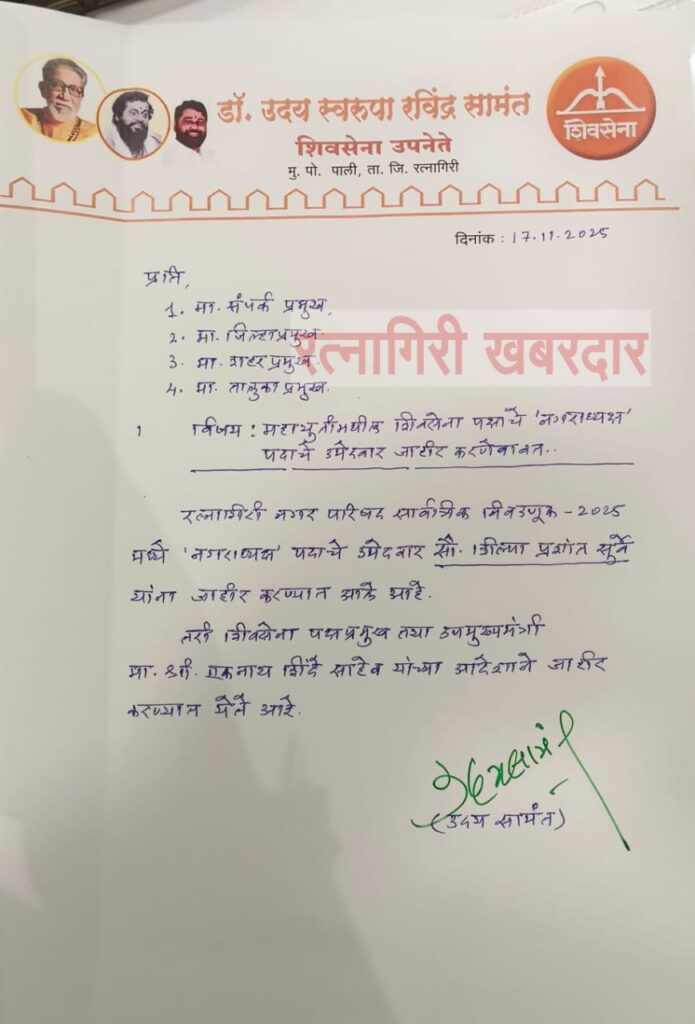 डॉ. उदय स्वरुपा रविंद्र सामंत
शिवसेना
शिवसेना उपनेते
मु. पो. पाली, ता. जि. रत्नागिरी
दिनांक : 17.11.2025
प्रति,
1. मा. संपर्क प्रमुख,
2. मा. जिल्हाप्रमुख.
रत्नागिरी खबरदार
3. मा. शहर प्रमुख.
4. मा. तालुका प्रमुख.
1 विषय : महायुतीमधील शिवसेना पक्षाचे 'नगराध्यक्ष'
पदाचे उमेदवार जाहीर करणेबाबत..
रत्नागिरी नगर परिषद सार्वत्रिक निवडणूक - 2025
मध्ये 'नगराध्यक्ष' पदाचे उमेदवार सौ. शिल्पा प्रशांत सुर्वे
यांना जाहीर करण्यात आले आहे.
तरी शिवसेना पक्षप्रमुख तथा उपमुख्यमंत्री
मा. श्री. एकनाथ शिंदे साहेब यांच्या आदेशाने जाहीर
करण्यात येते आहे.
(उदय सामंत)